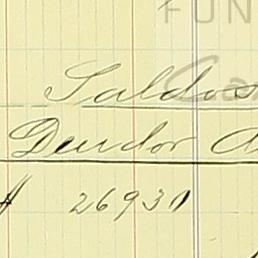 FUN
Saldos
Deudor A
# 26931